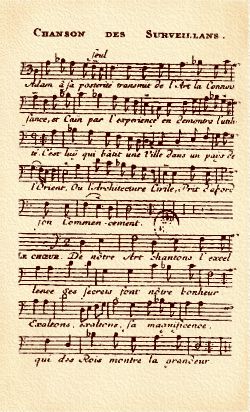 CHANSON DES SURVEILLANS.
seul
Adam à sa posterité transmit de l'Art la Connois
sance, et Cain par l'experience en demontra l'utili-
té. C'est lui qui bâtit une Ville dans un païs de
l'Orient, Ou l'Architecture Civile, Prit d'abord
son Commen-cement.
LE CHŒUR. De nôtre Art chantons l'excel
lence ses secrets font nôtre bonheur
Exaltons, exaltons, sa magnificence,
qui des Rois montre la grandeur